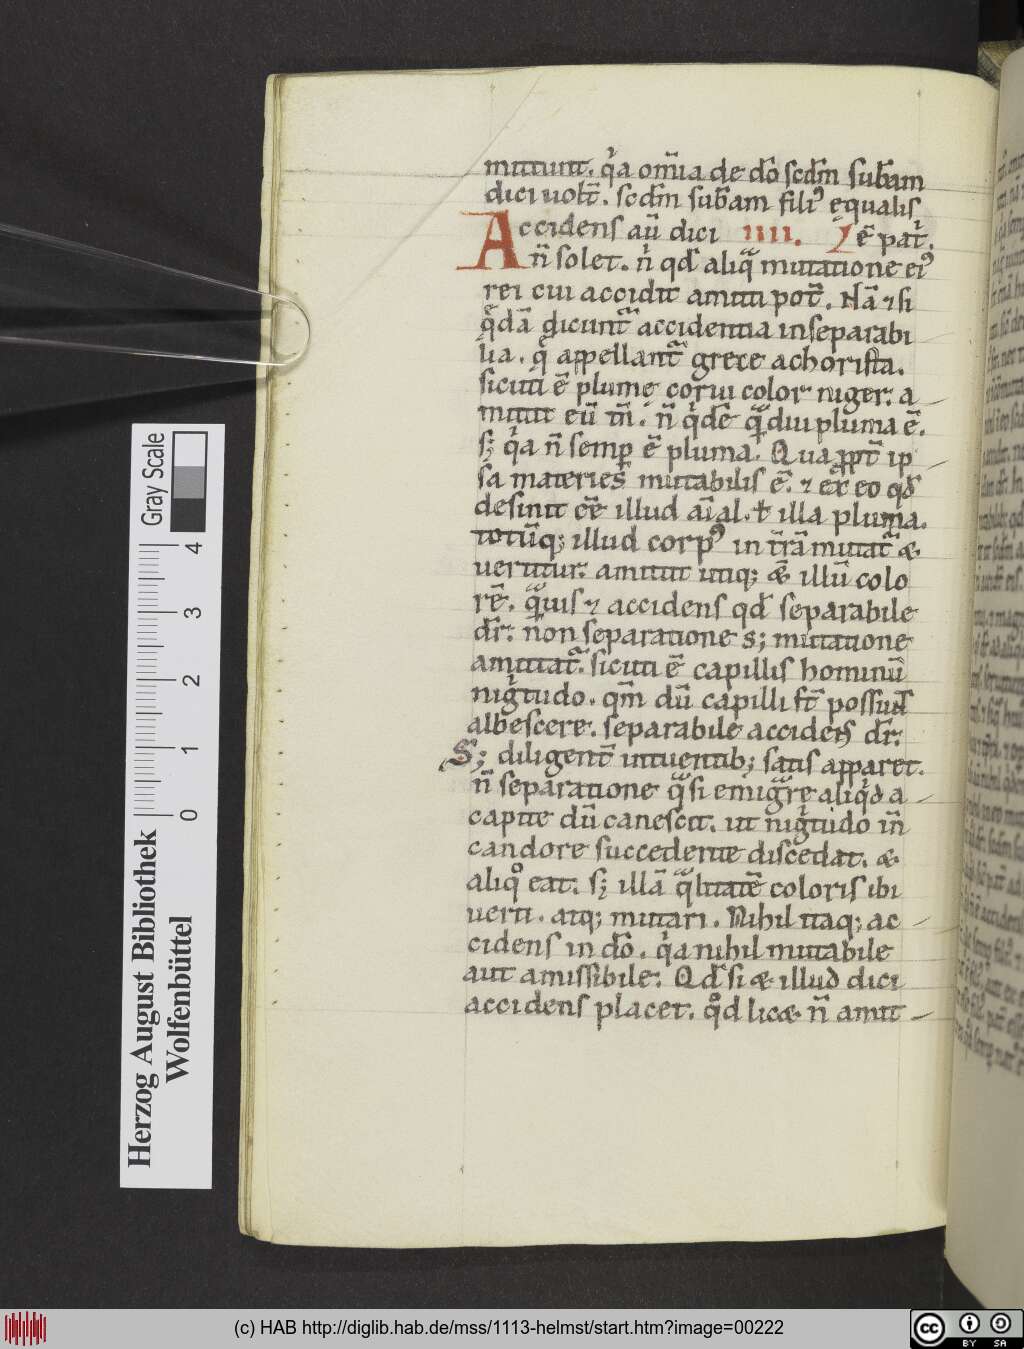 mittunt. q̍a om̄ia de dō scdm̄ sub̄am
dici uolt̄. scdm̄ sub̄am fili᾿ ęqualis
Accidens aū dici IIII. ē pat̍.
n̄ solet. n̍ qd̄ aliq̄ mutatione ei᾿
rei cui accidit amitti pot̄. Nā ⁊ si
q̄dā dicunt̄ accidentia inseparabi
lia. q̄ appellant̄ grece achorista.
sicuti ē plumę corui color niger. a
mittit eū tn̄. n̄ q̍dē q̄diu pluma ē.
s; q̍a n̄ semp ē pluma. Quapropt̄ ip
sa materies mutabilis ē. ⁊ ex eo qd̄
desinit eē illud aīal. ł illa pluma.
totūq; illud corp᾿ in t̄rā mutat̄ &
uertitur. amittit utiq; & illū colo
rē. q̄uis ⁊ accidens qd̄ separabile
dr̄. non separatione s; mutatione
amittat̄. sicuti ē capillis hominū
nig̍tudo. qm̄ dū capilli st̄ possunt
albescere. separabile accidens dr̄.
S; diligent̄ intuentib; satis apparet.
n̄ separatione q̄si emigrare aliq̍d a
capite dū canescit. ut nig̍tudo in̄
candore succedente discedat. &
aliq̊ eat. s; illā q̄litatē coloris ibi
uerti. atq; mutari. Nihil itaq; ac
cidens in dō. q̍a nihil mutabile
aut amissibile. Qd̄ si & illud dici
accidens placet. q̊d lic& n̄ amit
Herzog August Bibliothek
Wolfenbüttel
Gray Scale
0 1 2 3 4
(c) HAB http://diglib.hab.de/mss/1113-helmst/start.htm?image=00222
cc BY SA